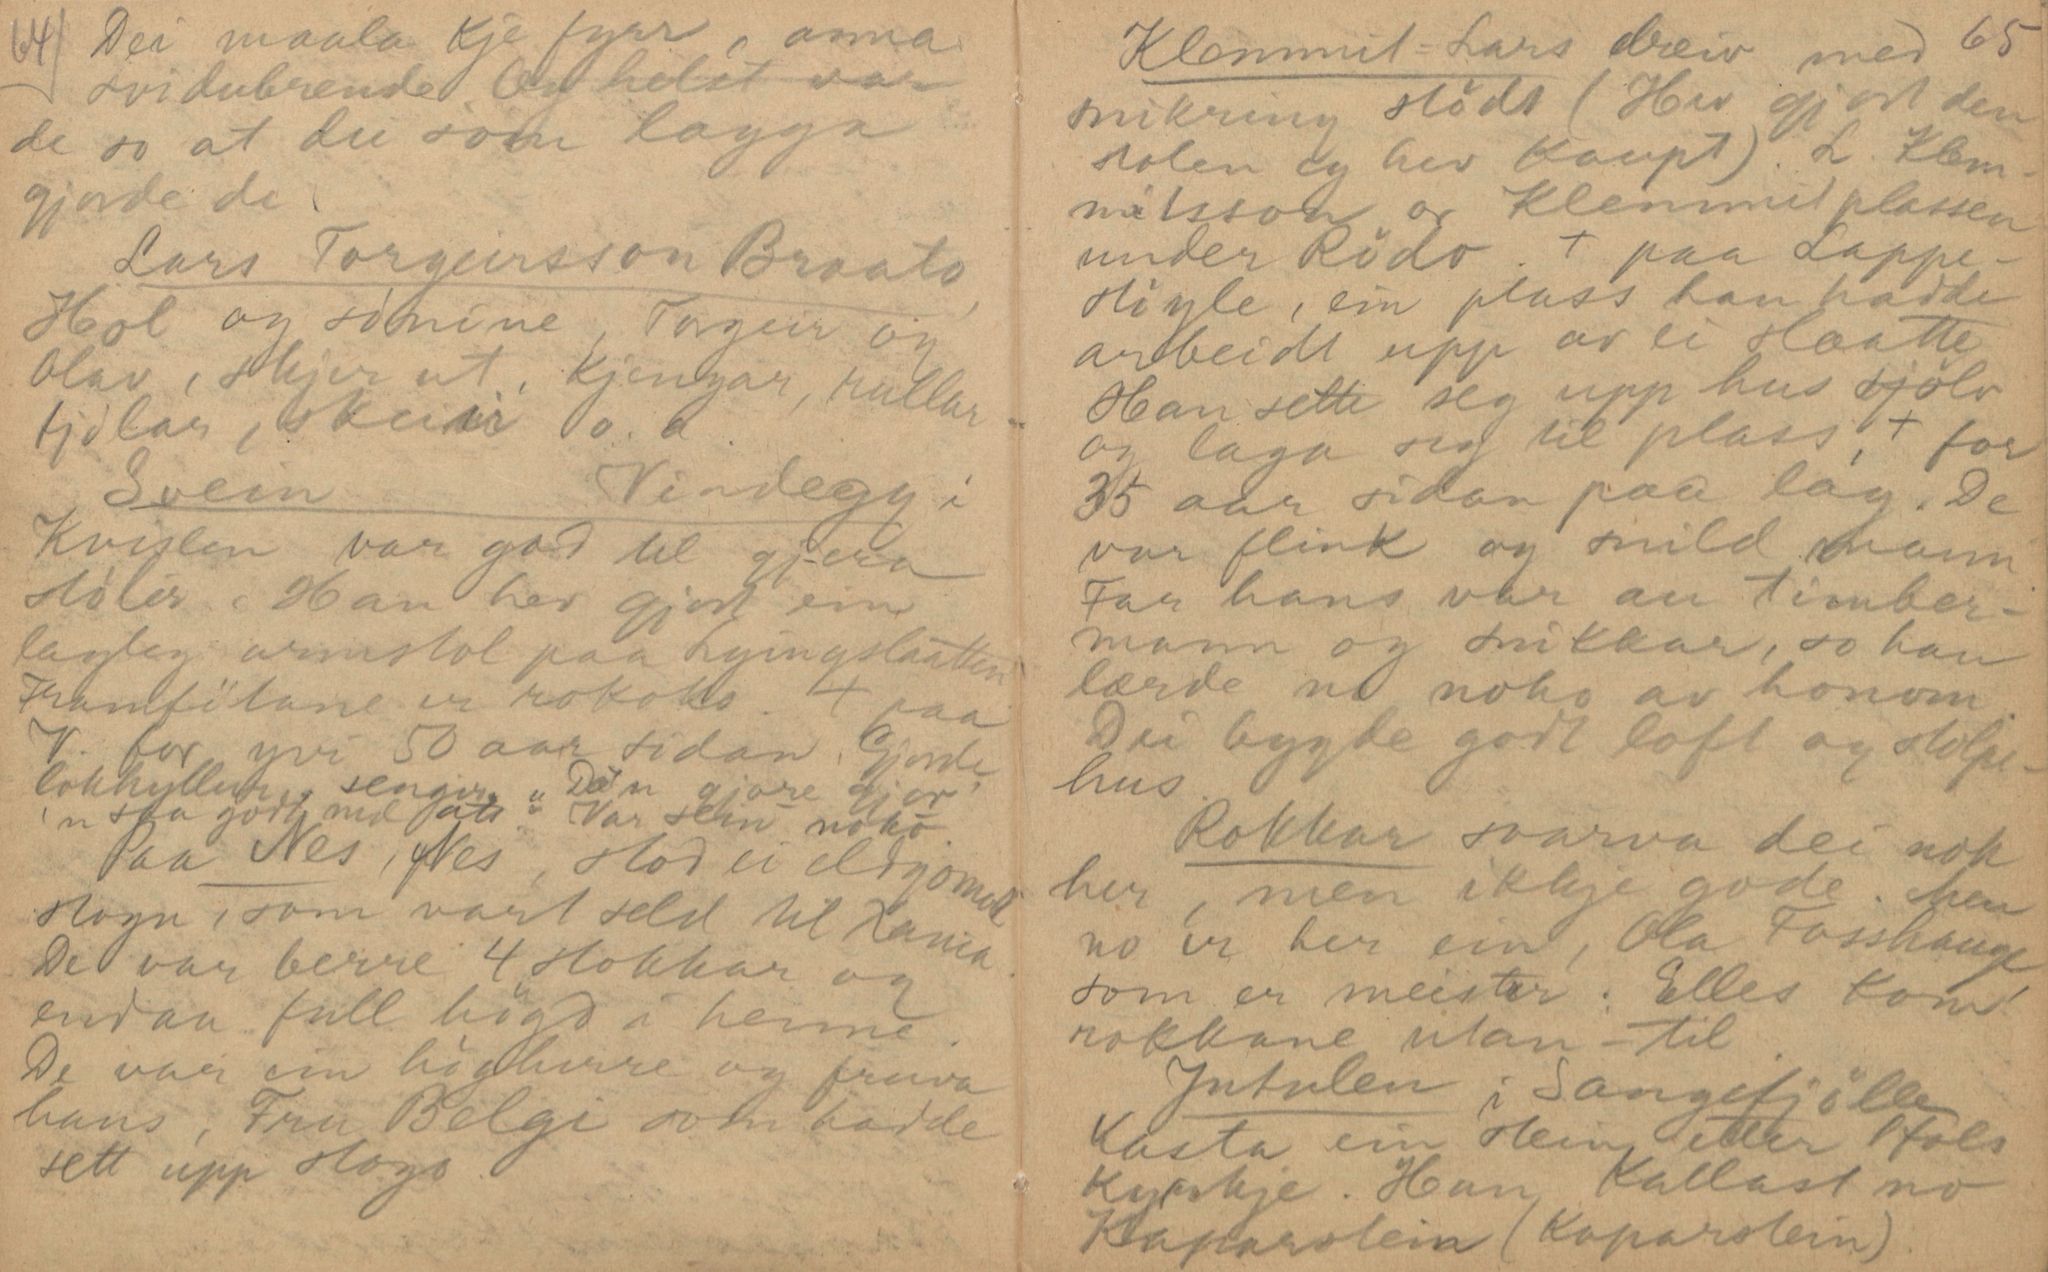 64
Dei maala kje fyrr, anna
svidubrende. Og helst var
de so at dei som lagga
gjorde de.
Lars Torgeirsson Braato,
Hol og sönine, Torgeir og
Olav, skjer ut, kjengar, rullar
tjölar, skeier o. a.
Svein Vindegg i
Kvislen var god til gjera
stolir. Han hev gjort ein
lagleg armstol paa Lyingslaatten
Framfötane er rokoko. + paa
V. for yvi 50 aar sidan. Gjorde
lokhyllur, sengir. "Dæ'n gjore gjor'
'n saa godt med fate." Var sein noko
Paa Nes, Nes, stod ei eldgomol
stogu, som vart seld til Rania.
De var berre 4 stokkar og
endaa full högd i henne.
De var ein högherre og fruva
hans, Fru Belgi som hadde
sett upp stogo.
65
Klemmit-Lars dreiv med
snikring stödt (Hev gjort den
stolen eg hev kaupt). L. Klem-
mitsson or Klemmitplassen
under Rödo. + paa Lappe-
stöyle, ein plass han hadde
arbeidt upp av ei slaatte
Han sette seg upp hus sjölv
og laga seg til plass, + for
35 aar sidan paa lag. De
var flink og snild mann
Far hans var au timber-
mann og snikkar, so han
lærde no noko av honom.
Dei bygde godt loft og stolpe-
hus.
Rokkar svarva dei nok
her, men ikkje gode. Men
no er her ein, Ola Fosshauge
som er meister. Elles kom
rokkane utan-til.
Jutulen i Sangefjölle
kasta ein stein etter Hols
kyrkje. Han kallast no
Kaparstein (Kaparstein).